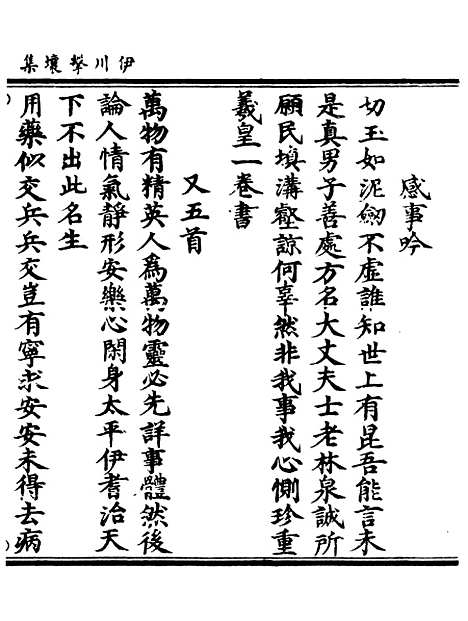 伊川擊壤集
感事吟
切玉如泥劒不虛誰知世上有昆吾能言未
是真男子善處方名大丈夫士老林泉誠所
願民填溝壑諒何辜然非我事我心惻珍重
羲皇一卷書
又五首
萬物有精英人為萬物靈必先詳事體然後
論人情氣靜形安樂心閑身太平伊耆治天
下不出此名生
用藥似交兵兵交豈有寧求安安未得去病